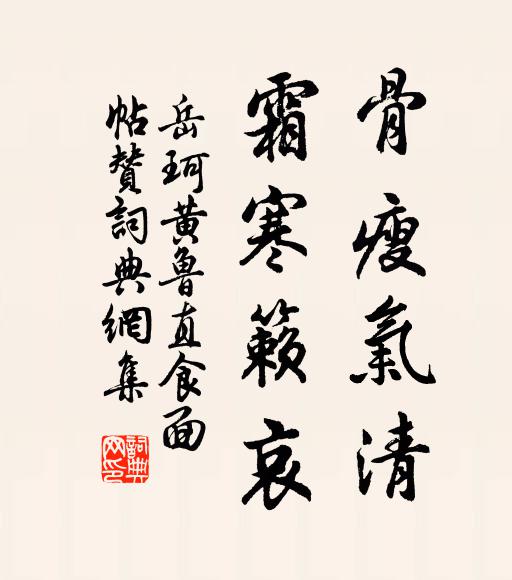 骨瘦氣清
霜寒籟哀
岳珂黃魯直食面
帖贊詞典網集
詞典网印